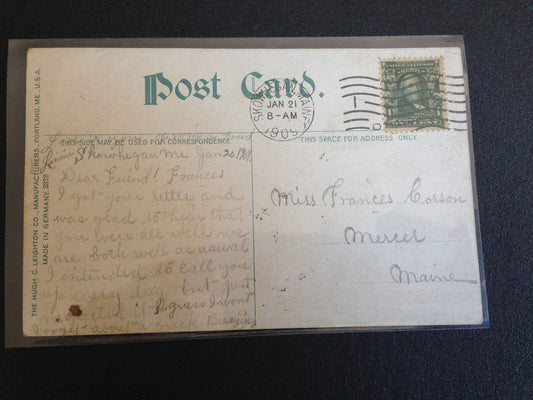 Post Card.
SKOWHEGAN
JAN 21
8-AM
1909
THE HUGH C. LEIGHTON CO., MANUFACTURERS, PORTLAND, ME., U.S.A.
MADE IN GERMANY.
THIS SIDE MAY BE USED FOR CORRESPONDENCE.
THIS SPACE FOR ADDRESS ONLY.
Skowhegan Me Jan 20 1909
Dear Friend! Frances
I got your letter and
was glad to hear that
you were all well we
are both well as usual
I intended to call you
up every day but just
I guess I wont
forget about a
Miss Frances Corson
Mercer
Maine